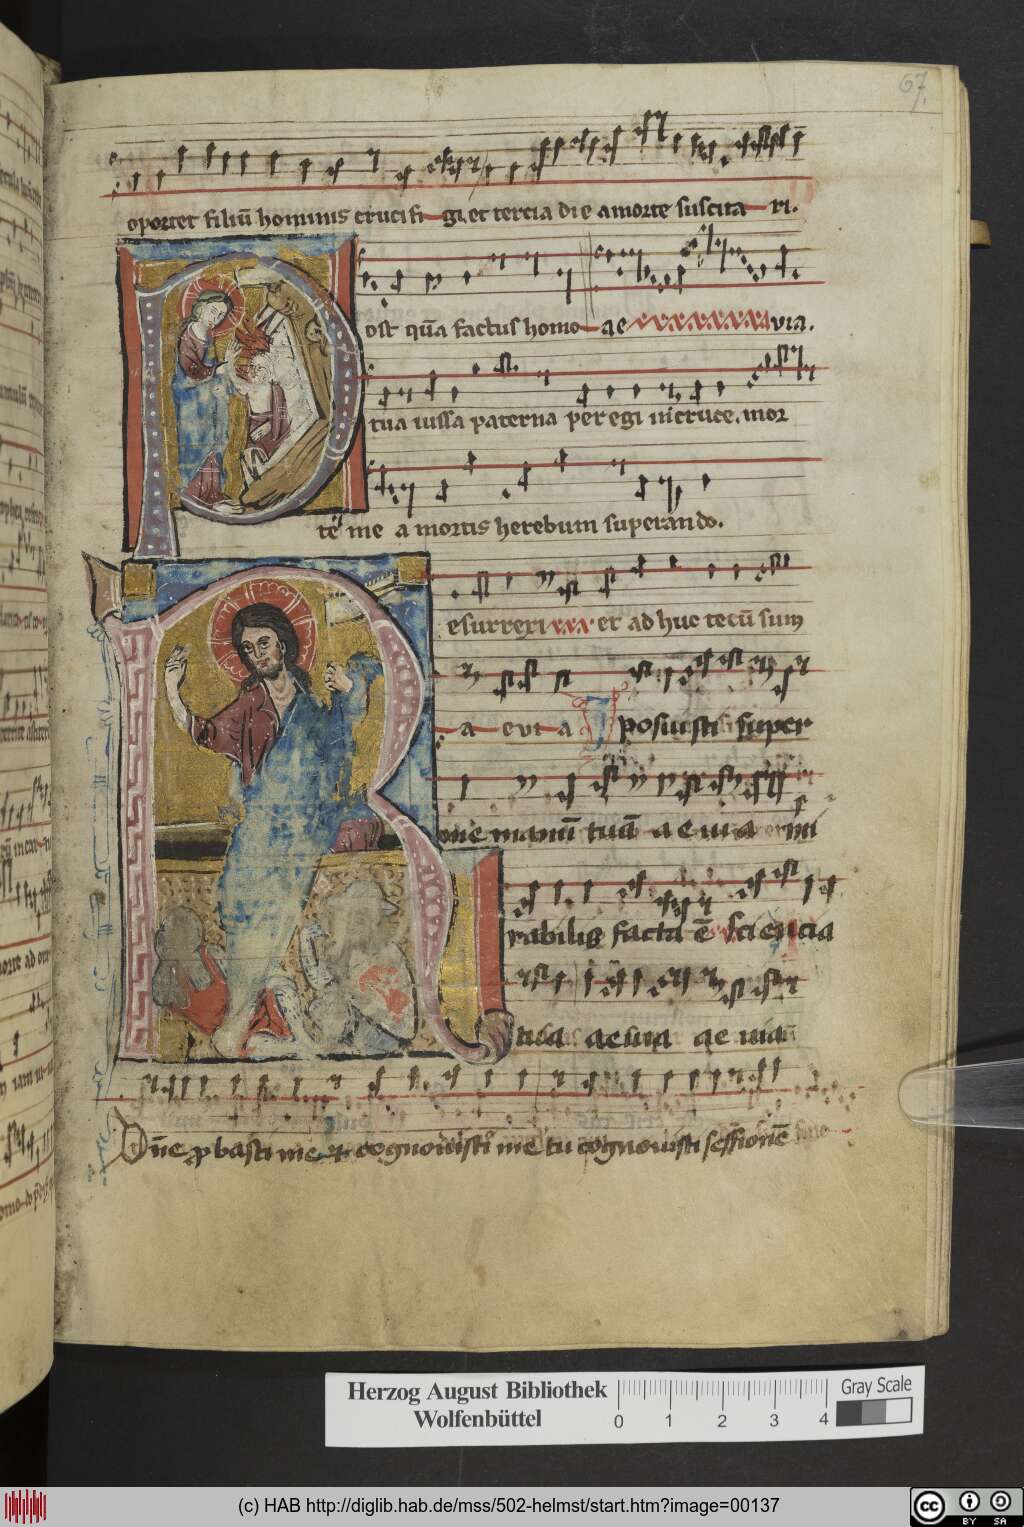 67.
oportet filiū hominis crucifi gi. et tercia die a morte suscita ri.
ost quā factus homo ae via.
tua iussa paterna per egi in cruce. mor
te me a mortis herebum superando.
esurrexi et ad huc tecū sum
a evi a posuisti super
me manū tuā a e ui a mi
rabilis facta ē sciencia
tua aeuia ae uia
Dñe probasti me et cognouisti me tu cognouisti sessionē
Herzog August Bibliothek
Wolfenbüttel
0 1 2 3 4
Gray Scale
(c) HAB http://diglib.hab.de/mss/502-helmst/start.htm?image=00137
cc BY SA